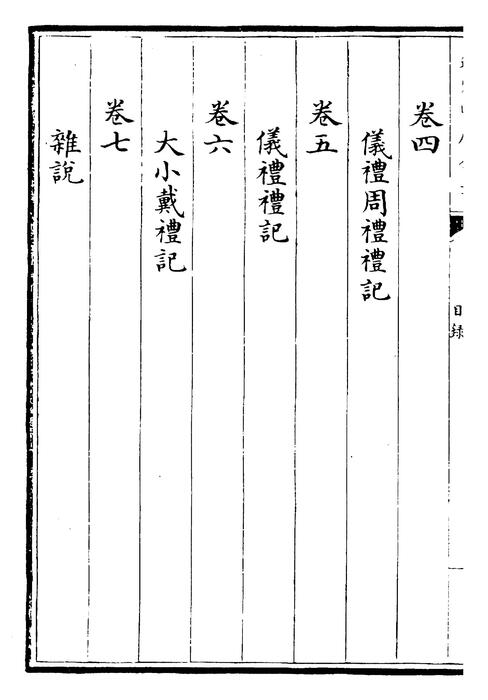 卷四
儀禮周禮禮記
卷五
儀禮禮記
卷六
大小戴禮記
卷七
雜說
目録